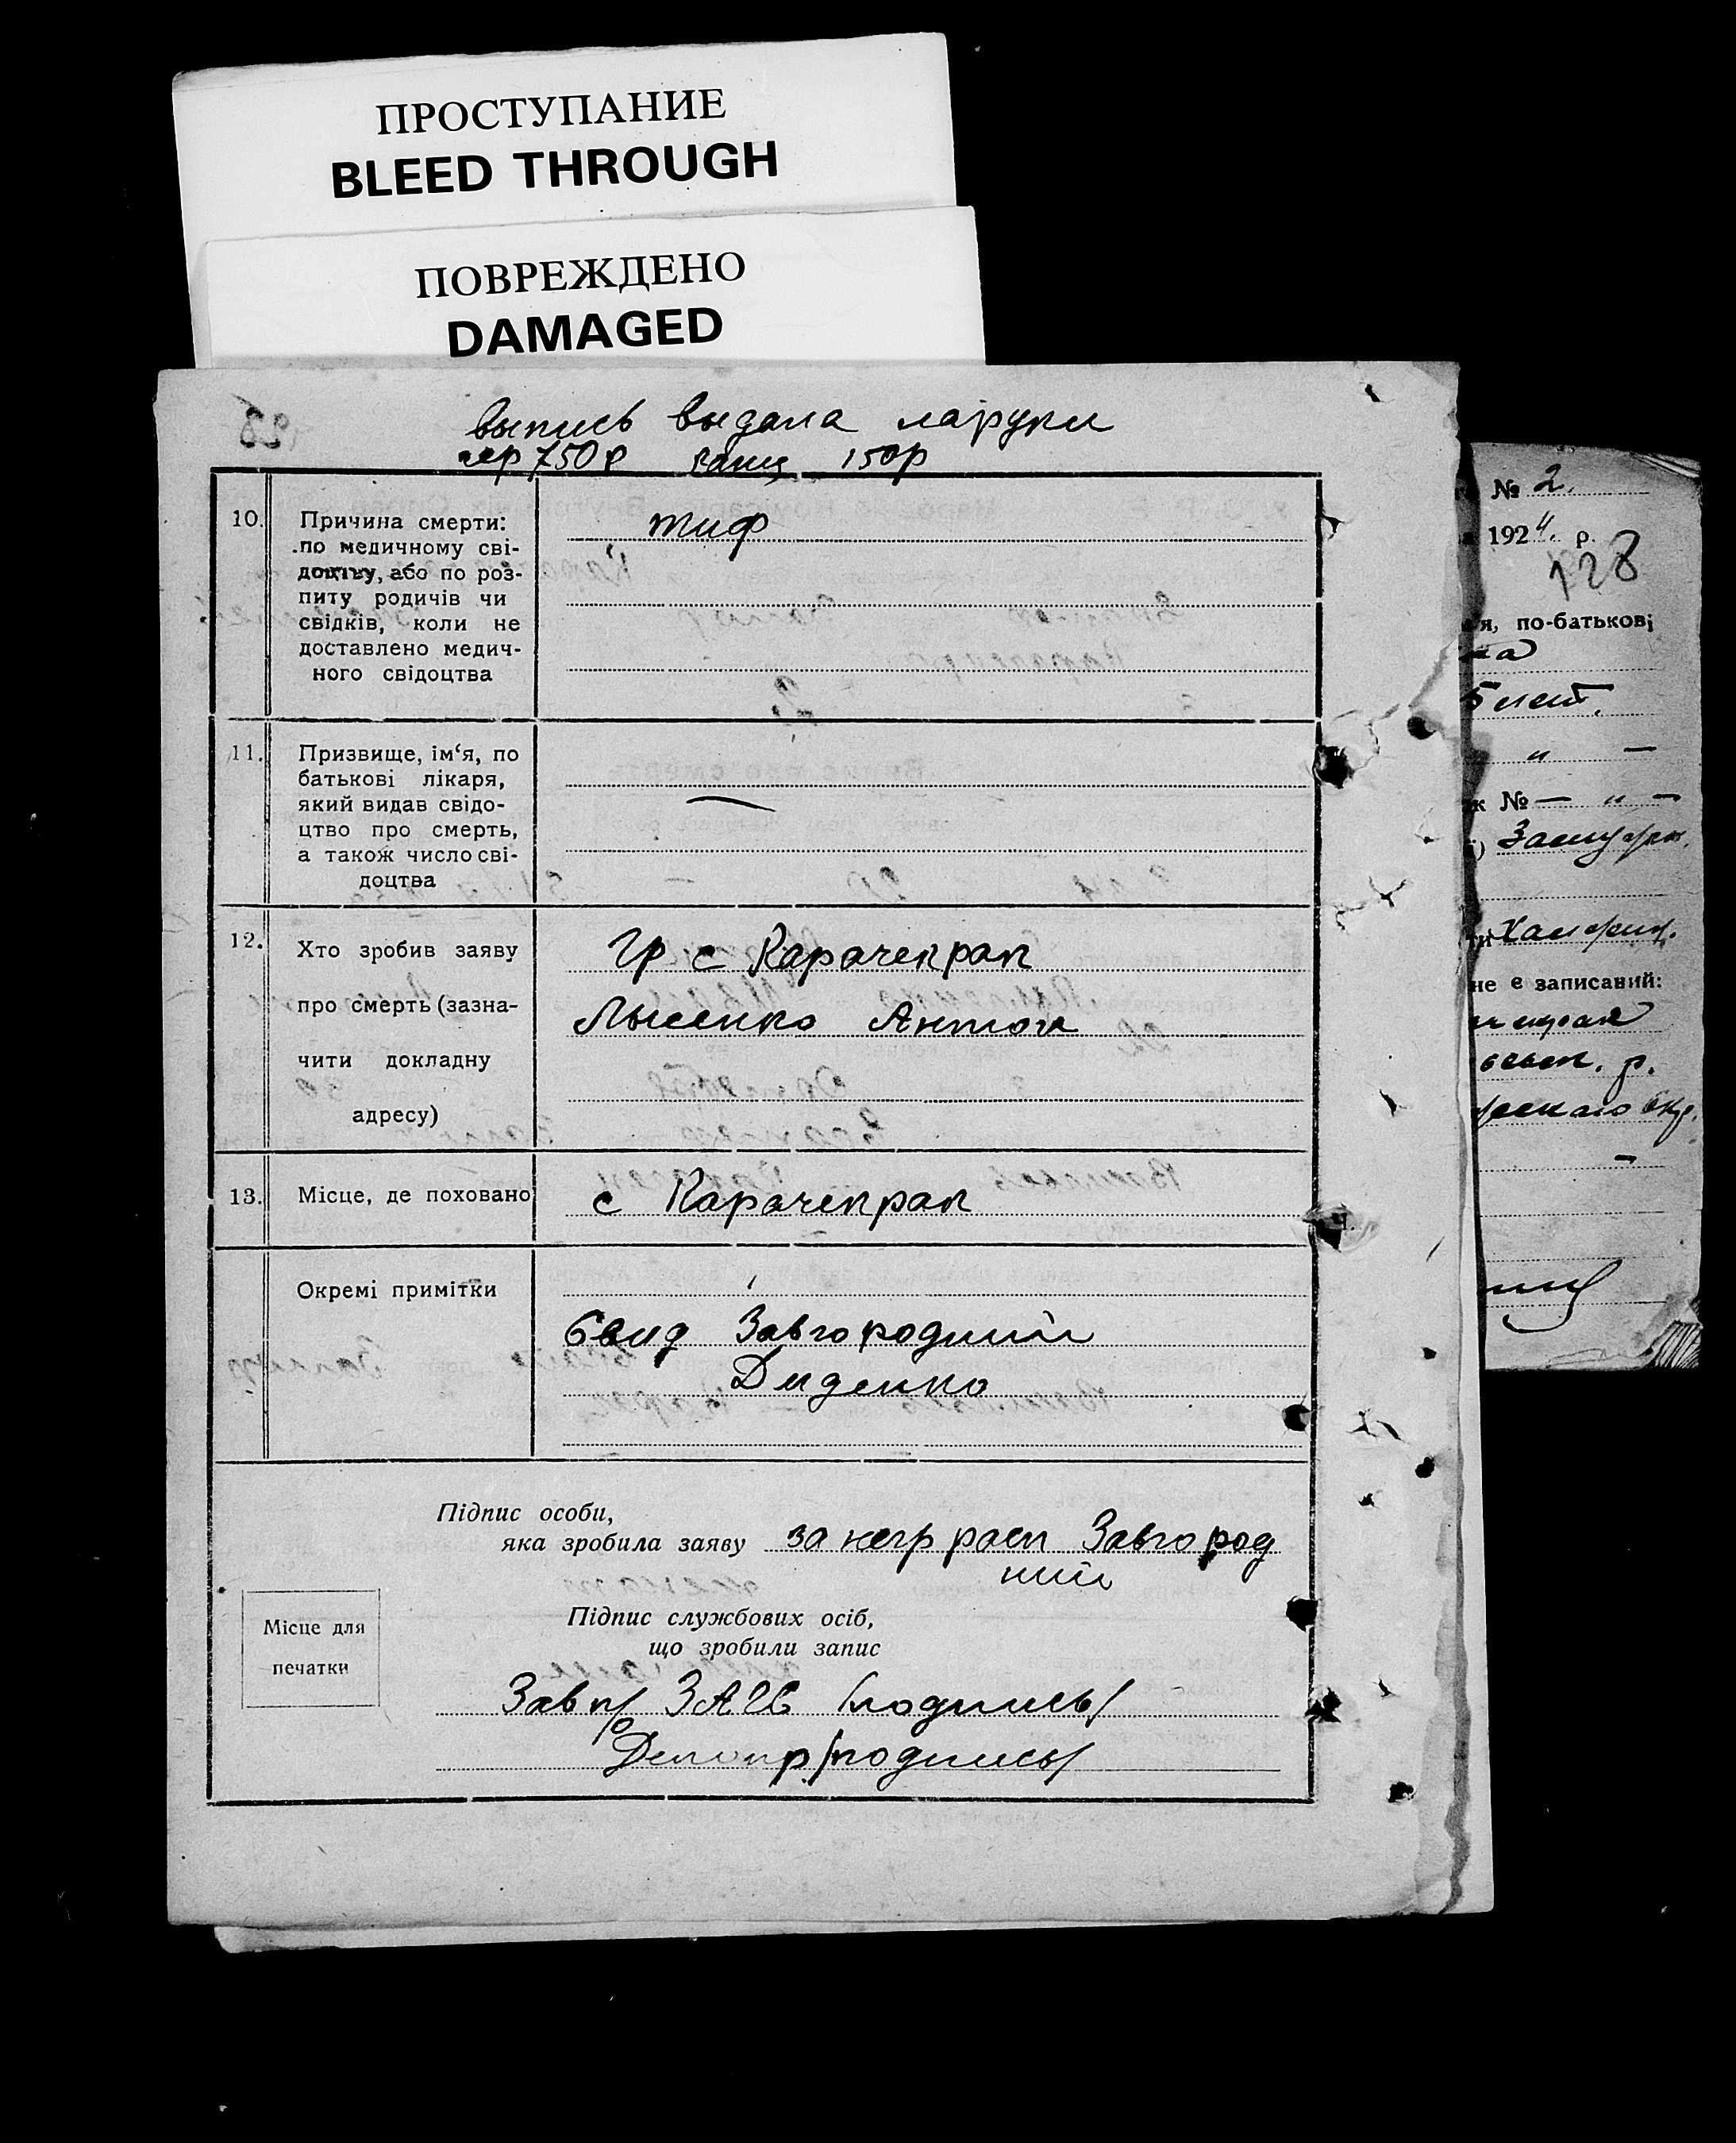 ПРОСТУПАНИЕ
BLEED THROUGH
ПОВРЕЖДЕНО
DAMAGED
выпись выдана
750р 150р
10. Причина смерти:
по медичному сві-
доцтву, або по роз-
питу родичів чи
свідків, коли не
доставлено медич-
ного свідоцтва
тиф
11. Призвище, ім‘я, по
батькові лікаря,
який видав свідо-
цтво про смерть,
а також число сві-
доцтва
—
12. Хто зробив заяву
про смерть (зазна-
чити докладну
адресу)
Гр с Карачекрак
Лысенко Антон
13. Місце, де поховано
с Карачекрак
Окремі примітки
Свид Завгородний
Диденко
Підпис особи,
яка зробила заяву за негр расп Завгород
ний
Місце для
печатки
Підпис службових осіб,
що зробили запис
Зав п/ ЗАГС /подпись/
/подпись/
№ 2.
1924. р.
128
я, по-батькові
на
5 лет.
„ —
к № — „ —
не є записаний:
р.
—